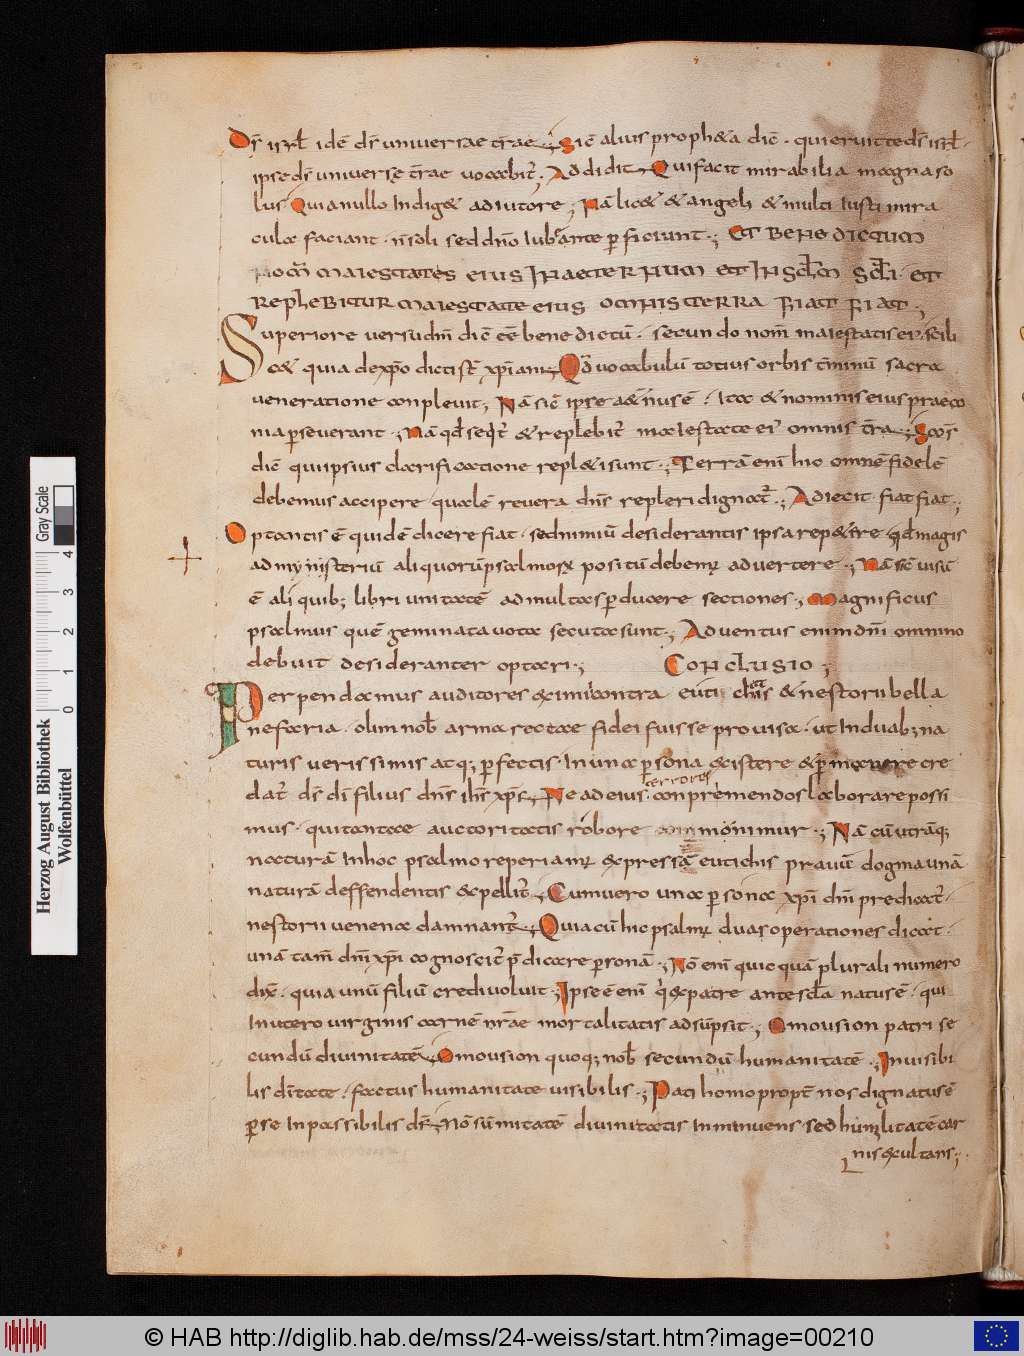 Dꝰ isrƚ idē dꝰ universae t̄rae. Sic̄ alius proph&a dic̄. qui eruit te dꝰ isrƚ.
ipse dꝰ univers̨e t̄rae vocabit̄. Addidit. Qui facit mirabilia magna so
lus. Quia nullo indig& adiutore; Nā lic& & angeli & multi iusti mira
cula faciant. n̄ soli sed dn̄o iubente p̱ficiunt.; ET BENEDICTUM
NOM̄ MAIESTATES EIUS IN AETERNUM ET IN SCL̄M SCL̄I. ET
REPLEBITUR MAIESTATE EIUS OMNIS TERRA FIAT FIAT;
Superiore versu dn̄m dic̄ ēē benedictū. secundo nom̄ maiestatis eiꝰ. scili
c& quia de xp̄o dicti st̄ xp̄iani. Qd̄ vocabulū totius orbis t̄minū sacra
veneratione conplevit; Nā sic̄ ipse a&n̄us ē. Ita & nominis eius praeco
nia p̱severant.; Nā qd̄ seqt̄ & replebit̄ maiestate eiꝰ omnis t̄ra; Scōs
dic̄ qui ipsius clarificatione repl&i sunt.; Terrā eni̅ hic omnē fidelē
debemus accipere. qualē revera dn̄s repleri dignat̄.; Adiecit. fiat fiat.;
Optantis ē quidē dicere fiat. sed nimiū desiderantis ipsa rep&ere. qd̄ magis
ad mynisteriū aliquorū psalmorꝝ positū debemꝰ advertere.; Nā sic̄ visū
ē aliquibꝫ libri unitatē ad multas p̱ducere sectiones.; Magnificus
psalmus quē geminata vota secuta sunt.; Adventus enim dn̄i omnino
debuit desideranter optari.;
CONCLUSIO;
Perpendamus auditores eximi contra eutichetis & nestorii bella
nefaria. olim nob̄ arma rectae fidei fuisse provisa. ut in duabꝫ na
turis verissimis atqꝫ p̱fectis. in una p̱sona existere & p̱manere cre
dat̄ dꝰ dī filius dn̄s ihs̄ xp̄s. Ne ad eius errores conpremendos laborare possi
mus. qui tantae auctoritatis robore commonimur.; Nā cū utrāqꝫ
naturā in hoc psalmo reperiamꝰ expressā eutichis pravū dogma unā
naturā deffendentis expellit̄. Cum vero una p̱sona xp̄i dn̄i predicat̄.
nestorii venena damnant̄. Quia cū hic psalmꝰ duas operationes dicat.
unā tam̄ dn̄i xp̄i cognoscit̄ p̄dicare p̱sonā.; Nō eni̅ quicquā plurali numero
dix̄. quia unū filiū credi voluit.; Ipse ē eni̅ qͥ ex patre ante scl̄a natus ē. qui
in utero virginis carnē nr̄ae mortalitatis adsūpsit.; Omousion patri se
cundū divinitatē. Omousion quoqꝫ nob̄ secundū humanitatē.; Invisibi
lis dītate. factus humanitate visibilis.; Pati homo propt̄ nos dignatus ē
p̱ se inpassibilis dꝰ.; Nō sūmitatē divinitatis inminuens. sed humilitatē car
nis exultans;
Gray Scale
0 1 2 3 4
Herzog August Bibliothek
Wolfenbüttel
© HAB http://diglib.hab.de/mss/24-weiss/start.htm?image=00210